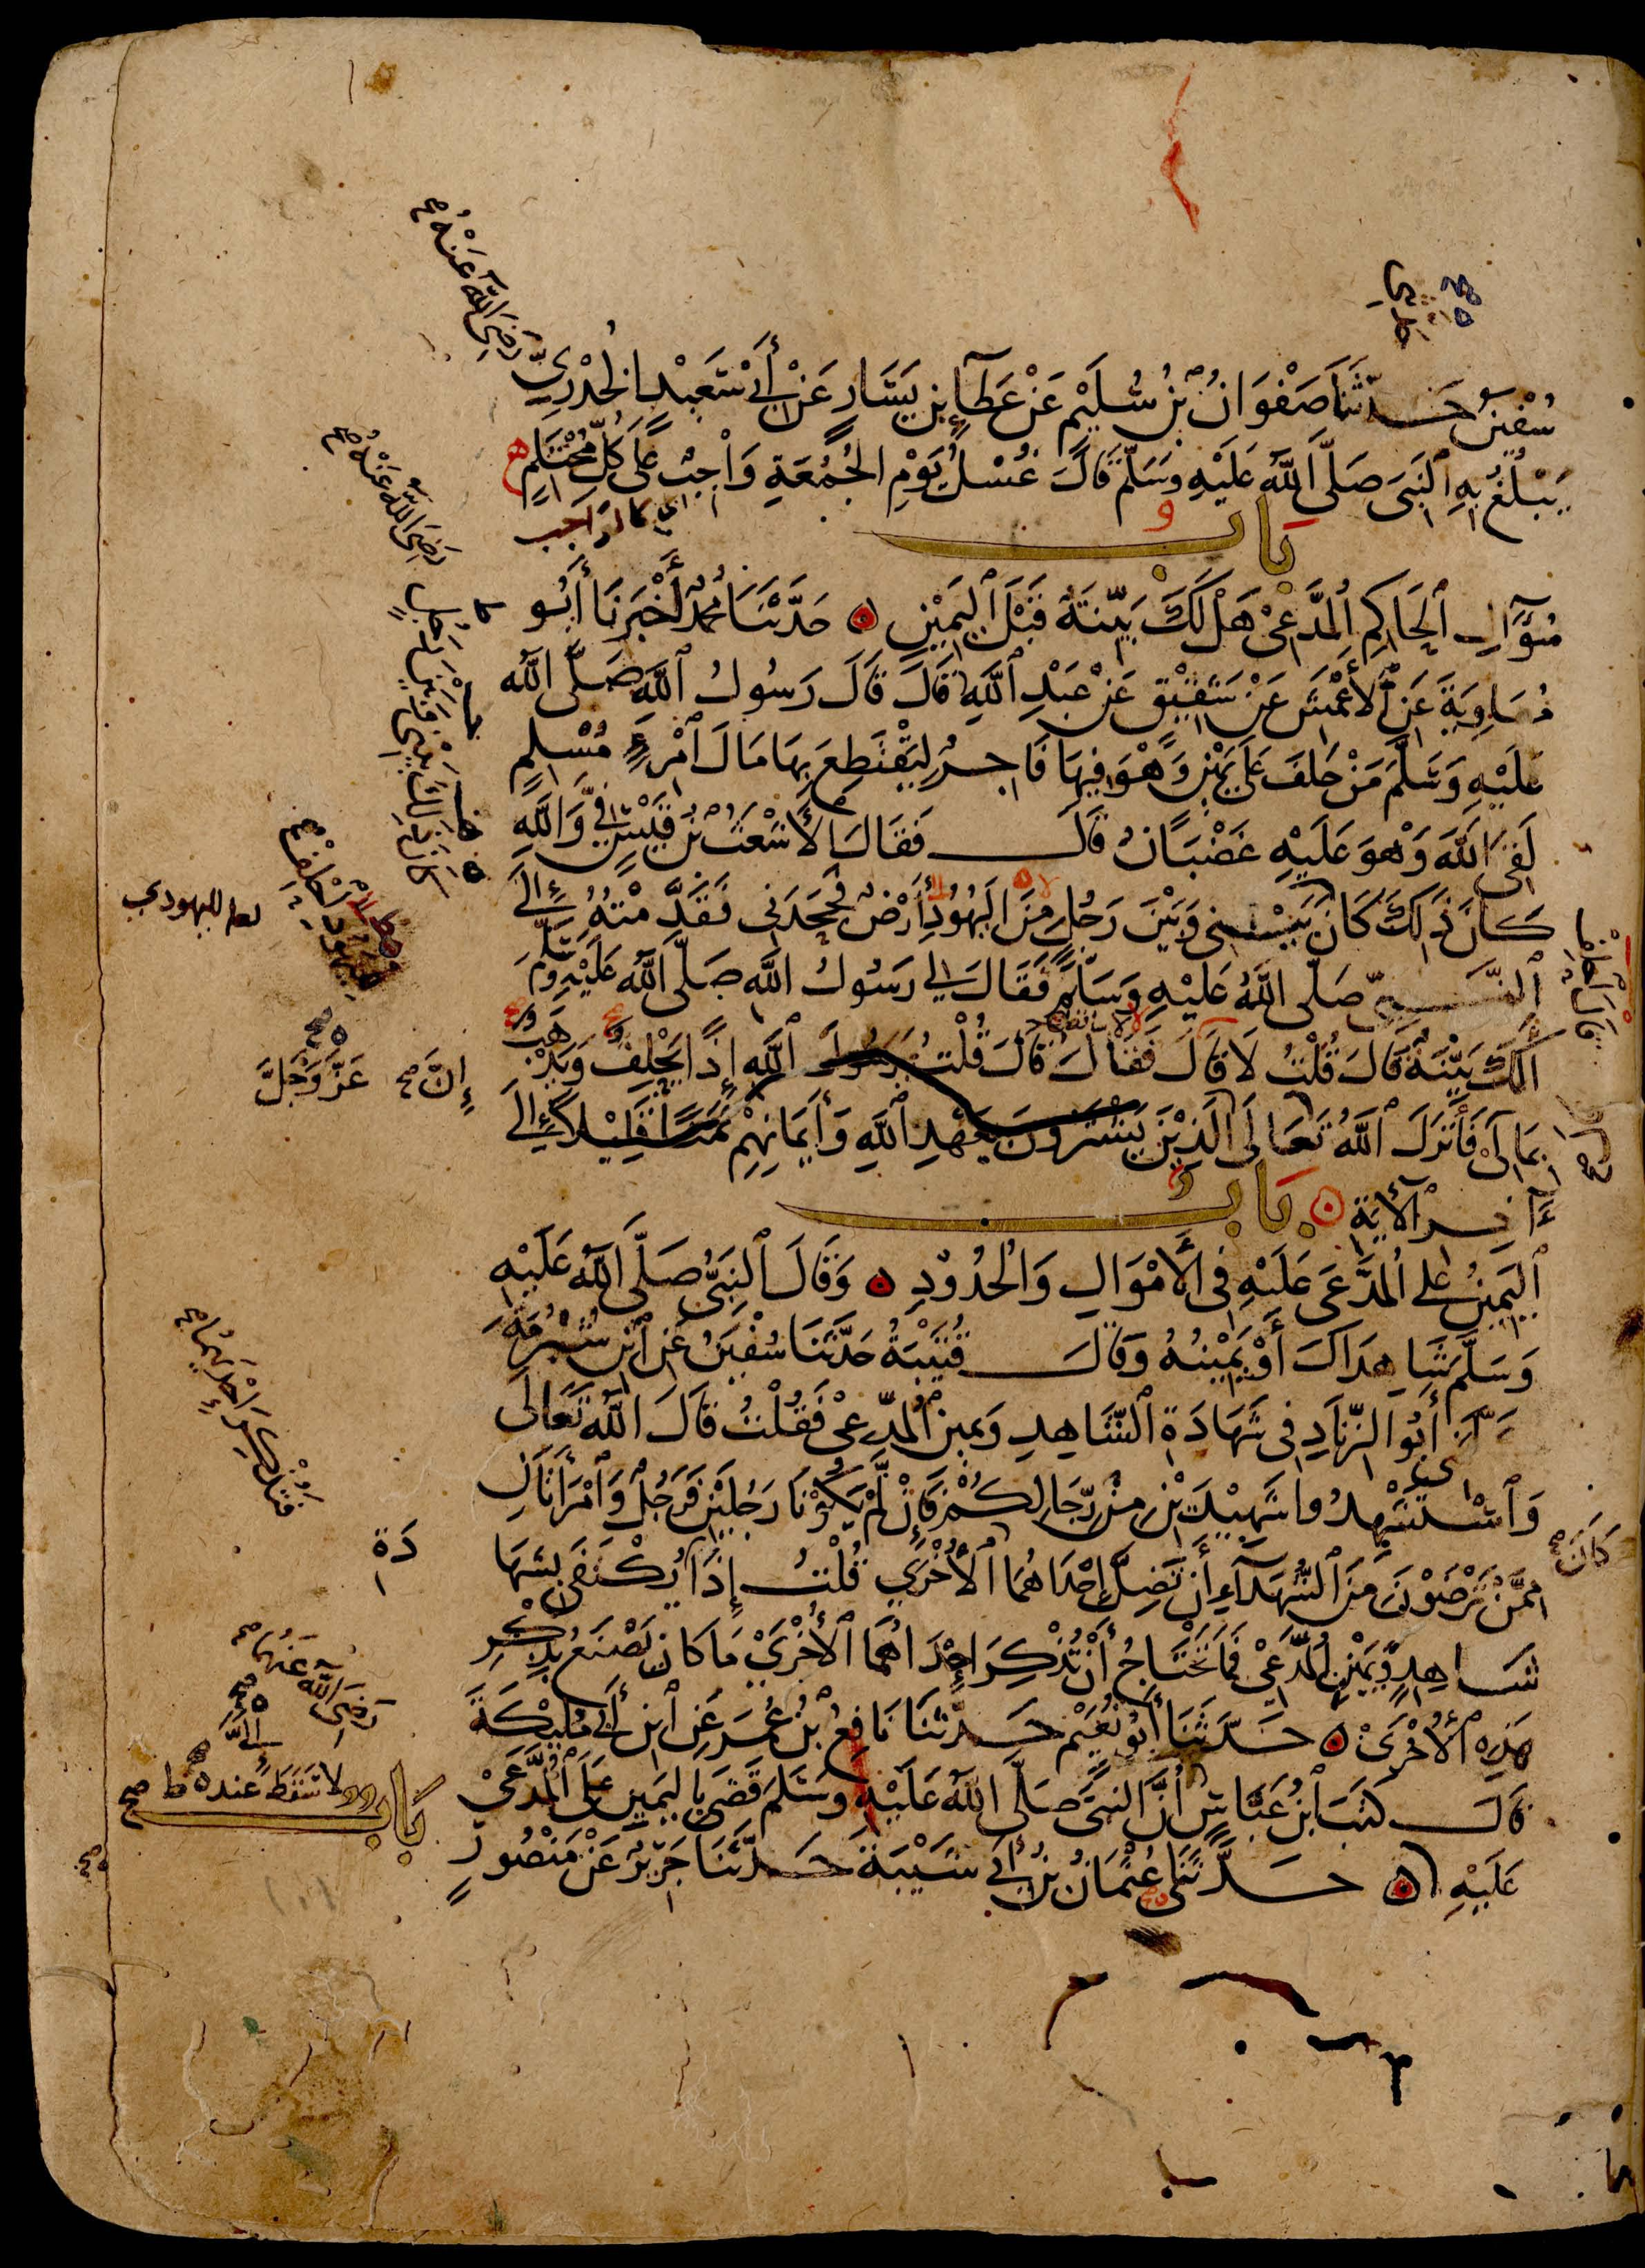 سُفْيٰنُ حَدَّثَنَا صَفْوَانُ بْنُ سُلَيْمٍ عَنْ عَطَآءِ بْنِ يَسَارٍ عَنْ أَبِي سَعِيْدٍ الْخُدْرِيِّ
رَضِيَ اللّٰهُ عَنْهُ
يَبْلُغُ بِهِ النَّبِيَّ صَلَّى اللّٰهُ عَلَيْهِ وَسَلَّمَ قَالَ غُسْلُ يَوْمِ الْجُمُعَةِ وَاجِبٌ عَلَى كُلِّ مُحْتَلِمٍ
اي كالواجب
بَابُ
سُؤَالِ الْحَاكِمِ الْمُدَّعِيَ هَلْ لَكَ بَيِّنَةٌ قَبْلَ الْيَمِيْنِ ۞ حَدَّثَنَا مُحَمَّدٌ أَخْبَرَنَا أَبُو
رَضِيَ اللّٰهُ عَنْهُ
مُعَاوِيَةَ عَنِ الْأَعْمَشِ عَنْ شَقِيْقٍ عَنْ عَبْدِ اللّٰهِ قَالَ قَالَ رَسُولُ اللّٰهِ صَلَّى اللّٰهُ
عَلَيْهِ وَسَلَّمَ مَنْ حَلَفَ عَلَى يَمِيْنٍ وَهُوَ فِيهَا فَاجِرٌ لِيَقْتَطِعَ بِهَا مَالَ امْرِئٍ مُسْلِمٍ
لَقِيَ اللّٰهَ وَهْوَ عَلَيْهِ غَضْبَانُ قَالَ فَقَالَ الْأَشْعَثُ بْنُ قَيْسٍ فِيَّ وَاللّٰهِ
كَانَ ذٰلِكَ كَانَ بَيْنِي وَبَيْنَ رَجُلٍ مِنَ الْيَهُودِ أَرْضٌ فَجَحَدَنِي فَقَدَّمْتُهُ إِلَى
لليهودي
النَّبِيِّ صَلَّى اللّٰهُ عَلَيْهِ وَسَلَّمَ فَقَالَ لِي رَسُولُ اللّٰهِ صَلَّى اللّٰهُ عَلَيْهِ وَسَلَّمَ
أَلَكَ بَيِّنَةٌ قَالَ قُلْتُ لَا قَالَ فَقَالَ قَالَ قُلْتُ يَا رَسُولَ اللّٰهِ إِذًا يَحْلِفَ وَيَذْهَبَ
إِنَّ عَزَّ وَجَلَّ
بِمَالِي فَأَنْزَلَ اللّٰهُ تَعَالَى الَّذِيْنَ يَشْتَرُونَ بِعَهْدِ اللّٰهِ وَأَيْمَانِهِمْ ثَمَنًا قَلِيْلًا إِلَى
اٰخِرِ الْآيَةِ ۞ بَابُ
الْيَمِيْنِ عَلَى الْمُدَّعَى عَلَيْهِ فِي الْأَمْوَالِ وَالْحُدُودِ ۞ وَقَالَ النَّبِيُّ صَلَّى اللّٰهُ عَلَيْهِ
وَسَلَّمَ شَاهِدَاكَ أَوْ يَمِيْنُهُ وَقَالَ قُتَيْبَةُ حَدَّثَنَا سُفْيٰنُ عَنِ ابْنِ شُبْرُمَةَ
كَلَّمَنِي أَبُو الزِّنَادِ فِي شَهَادَةِ الشَّاهِدِ وَيَمِيْنِ الْمُدَّعِي فَقُلْتُ قَالَ اللّٰهُ تَعَالَى
وَاسْتَشْهِدُوا شَهِيْدَيْنِ مِنْ رِجَالِكُمْ فَإِنْ لَمْ يَكُوْنَا رَجُلَيْنِ فَرَجُلٌ وَامْرَأَتَانِ
مِمَّنْ تَرْضَوْنَ مِنَ الشُّهَدَآءِ أَنْ تَضِلَّ إِحْدَاهُمَا الْأُخْرَى قُلْتُ إِذَا كَانَ يُكْتَفَى بِشَهَادَةِ
شَاهِدٍ وَيَمِيْنِ الْمُدَّعِي فَمَا تَحْتَاجُ أَنْ تُذْكِرَ إِحْدَاهُمَا الْأُخْرَى مَا كَانَ يَصْنَعُ بِذِكْرِ
هٰذِهِ الْأُخْرَى ۞ حَدَّثَنَا أَبُو نُعَيْمٍ حَدَّثَنَا نَافِعُ بْنُ عُمَرَ عَنِ ابْنِ أَبِي مُلَيْكَةَ
رَضِيَ اللّٰهُ عَنْهُمَا
قَالَ كَتَبَ ابْنُ عَبَّاسٍ أَنَّ النَّبِيَّ صَلَّى اللّٰهُ عَلَيْهِ وَسَلَّمَ قَضَى بِالْيَمِيْنِ عَلَى الْمُدَّعَى
بَابٌ
عَلَيْهِ ۞ حَدَّثَنَا عُثْمَانُ بْنُ أَبِي شَيْبَةَ حَدَّثَنَا جَرِيْرٌ عَنْ مَنْصُورٍ